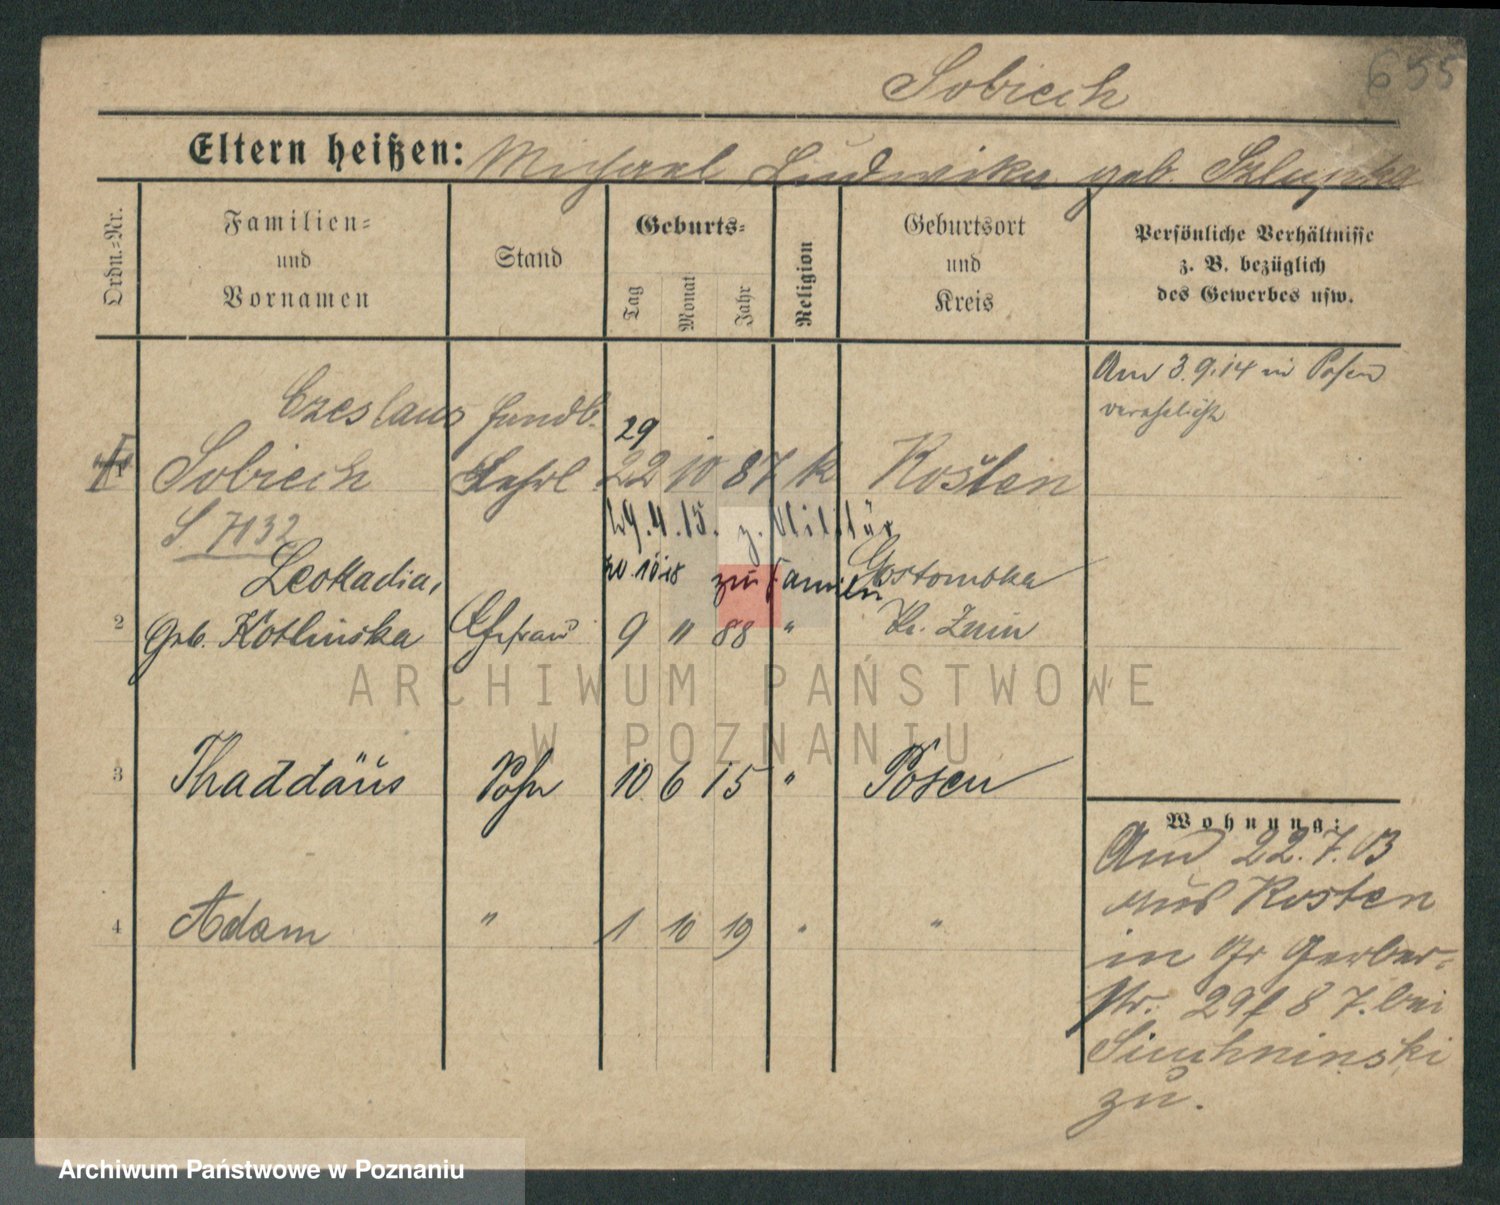 655
Sobiech
Eltern heißen: Michael Ludwika geb.
Ordn.=Nr.
Familien=
und
Vornamen
Stand
Geburts=
Tag
Monat
Jahr
Religion
Geburtsort
und
Kreis
Persönliche Verhältnisse
z. B. bezüglich
des Gewerbes usw.
Am 3.9.14 in Posen
verehelicht
Czeslaus
29
Sobiech 22 10 87 k Kosten
S 7132
29.4.15. z. Militär
zu Familien
Leokadia, Gostomska
2 Geb. Kotlinska Ehefrau 9 11 88 " Kr. Znin
ARCHIWUM PAŃSTWOWE
W POZNANIU
3 Thaddäus Sohn 10 6 15 " Posen
Wohnung:
Am 22.7.03
aus Kosten
4 Adam " 1 10 19 " "
in Gr Gerber=
str. 29 8 7. bei
zu.
Archiwum Państwowe w Poznaniu